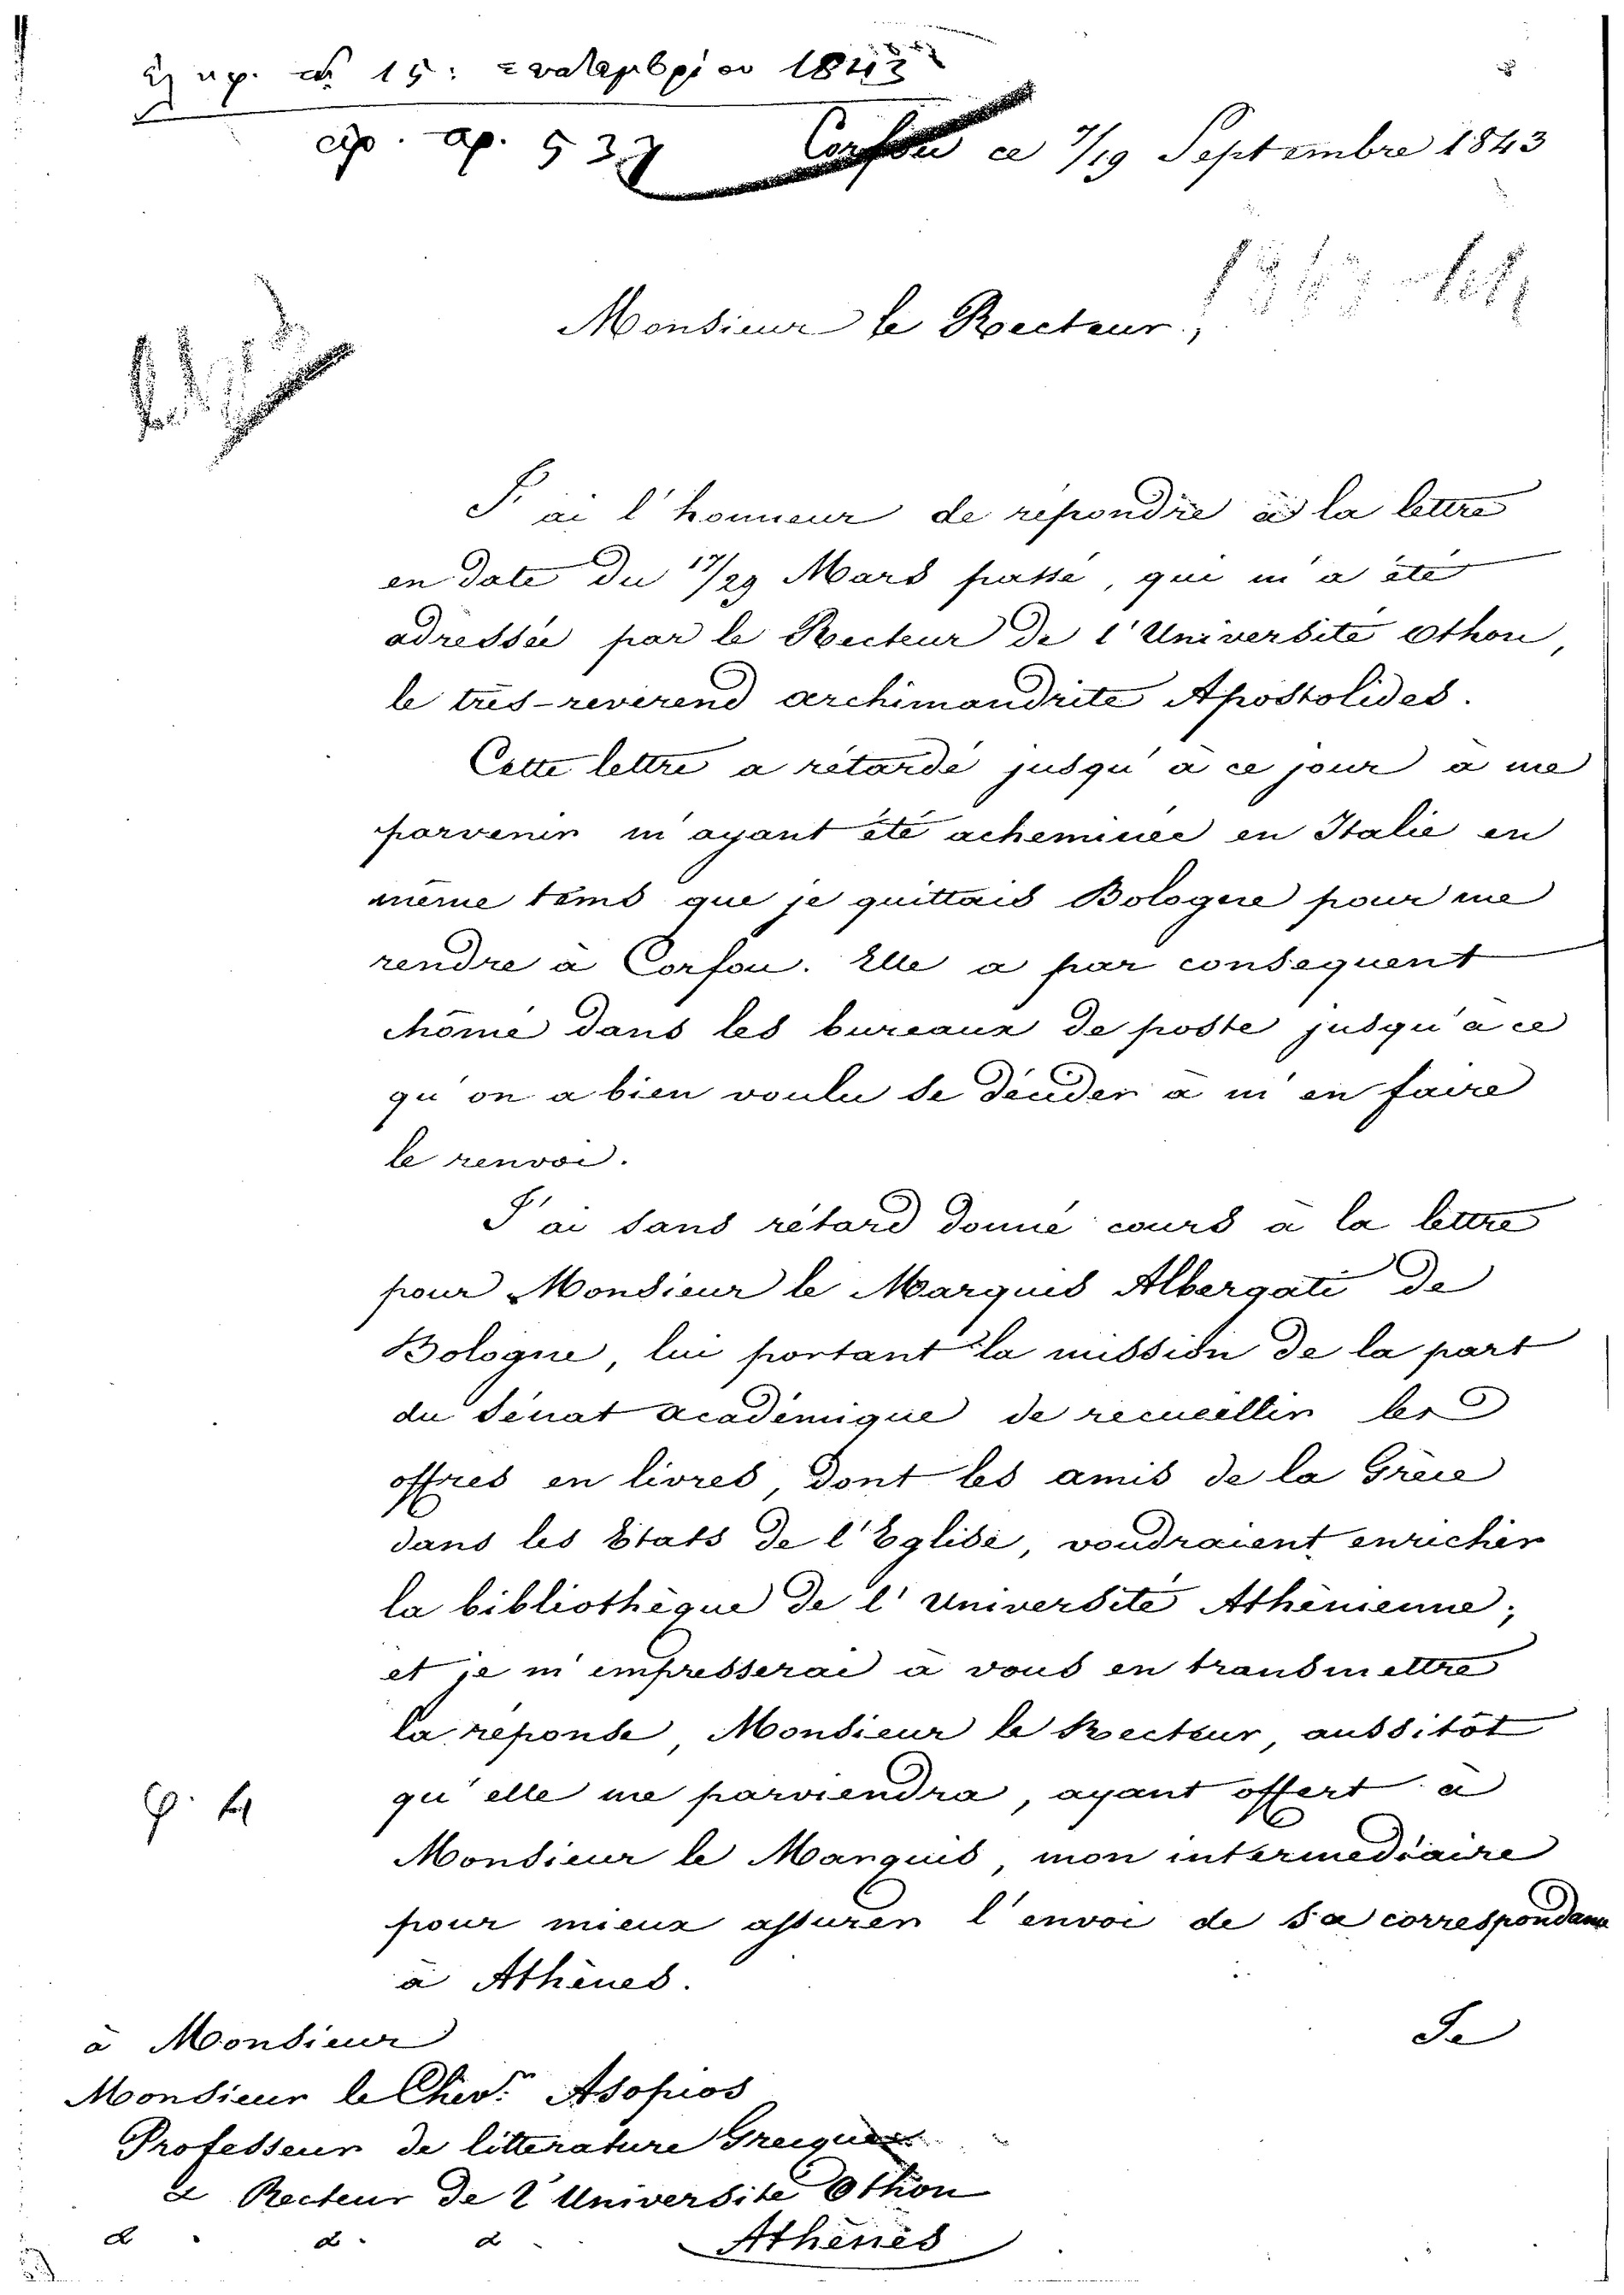 15: σεπτεμβρίου 1843
αρ. 537
Corfou ce 7/19 Septembre 1843
Monsieur le Recteur,
J'ai l'honneur de répondre à la lettre
en date du 17/29 Mars passé, qui m'a été
adressée par le Recteur de l'Université Othon,
le très-reverend archimandrite Apostolides.
Cette lettre a rétardé jusqu'à ce jour à me
parvenir m'ayant été acheminée en Italie en
même téms que je quittais Bologne pour me
rendre à Corfou. Elle a par consequent
chômé dans les bureaux de poste jusqu'à ce
qu'on a bien voulu se décider à m'en faire
le renvoi.
J'ai sans rétard donné cours à la lettre
pour Monsieur le Marquis Albergati de
Bologne, lui portant la mission de la part
du Sénat académique de recueillir les
offres en livres, dont les amis de la Grèce
dans les Etats de l'Eglise, voudraient enrichir
la bibliothèque de l'Université Athénienne;
et je m'empresserai à vous en transmettre
la réponse, Monsieur le Recteur, aussitôt
qu'elle me parviendra, ayant offert à
Monsieur le Marquis, mon intermédiaire
pour mieux assurer l'envoi de sa correspondance
à Athènes.
Je
à Monsieur
Monsieur le Chev.r Asopios
Professeur de littérature Grecque
& Recteur de l'Université Othon
& . & . & .
Athènes